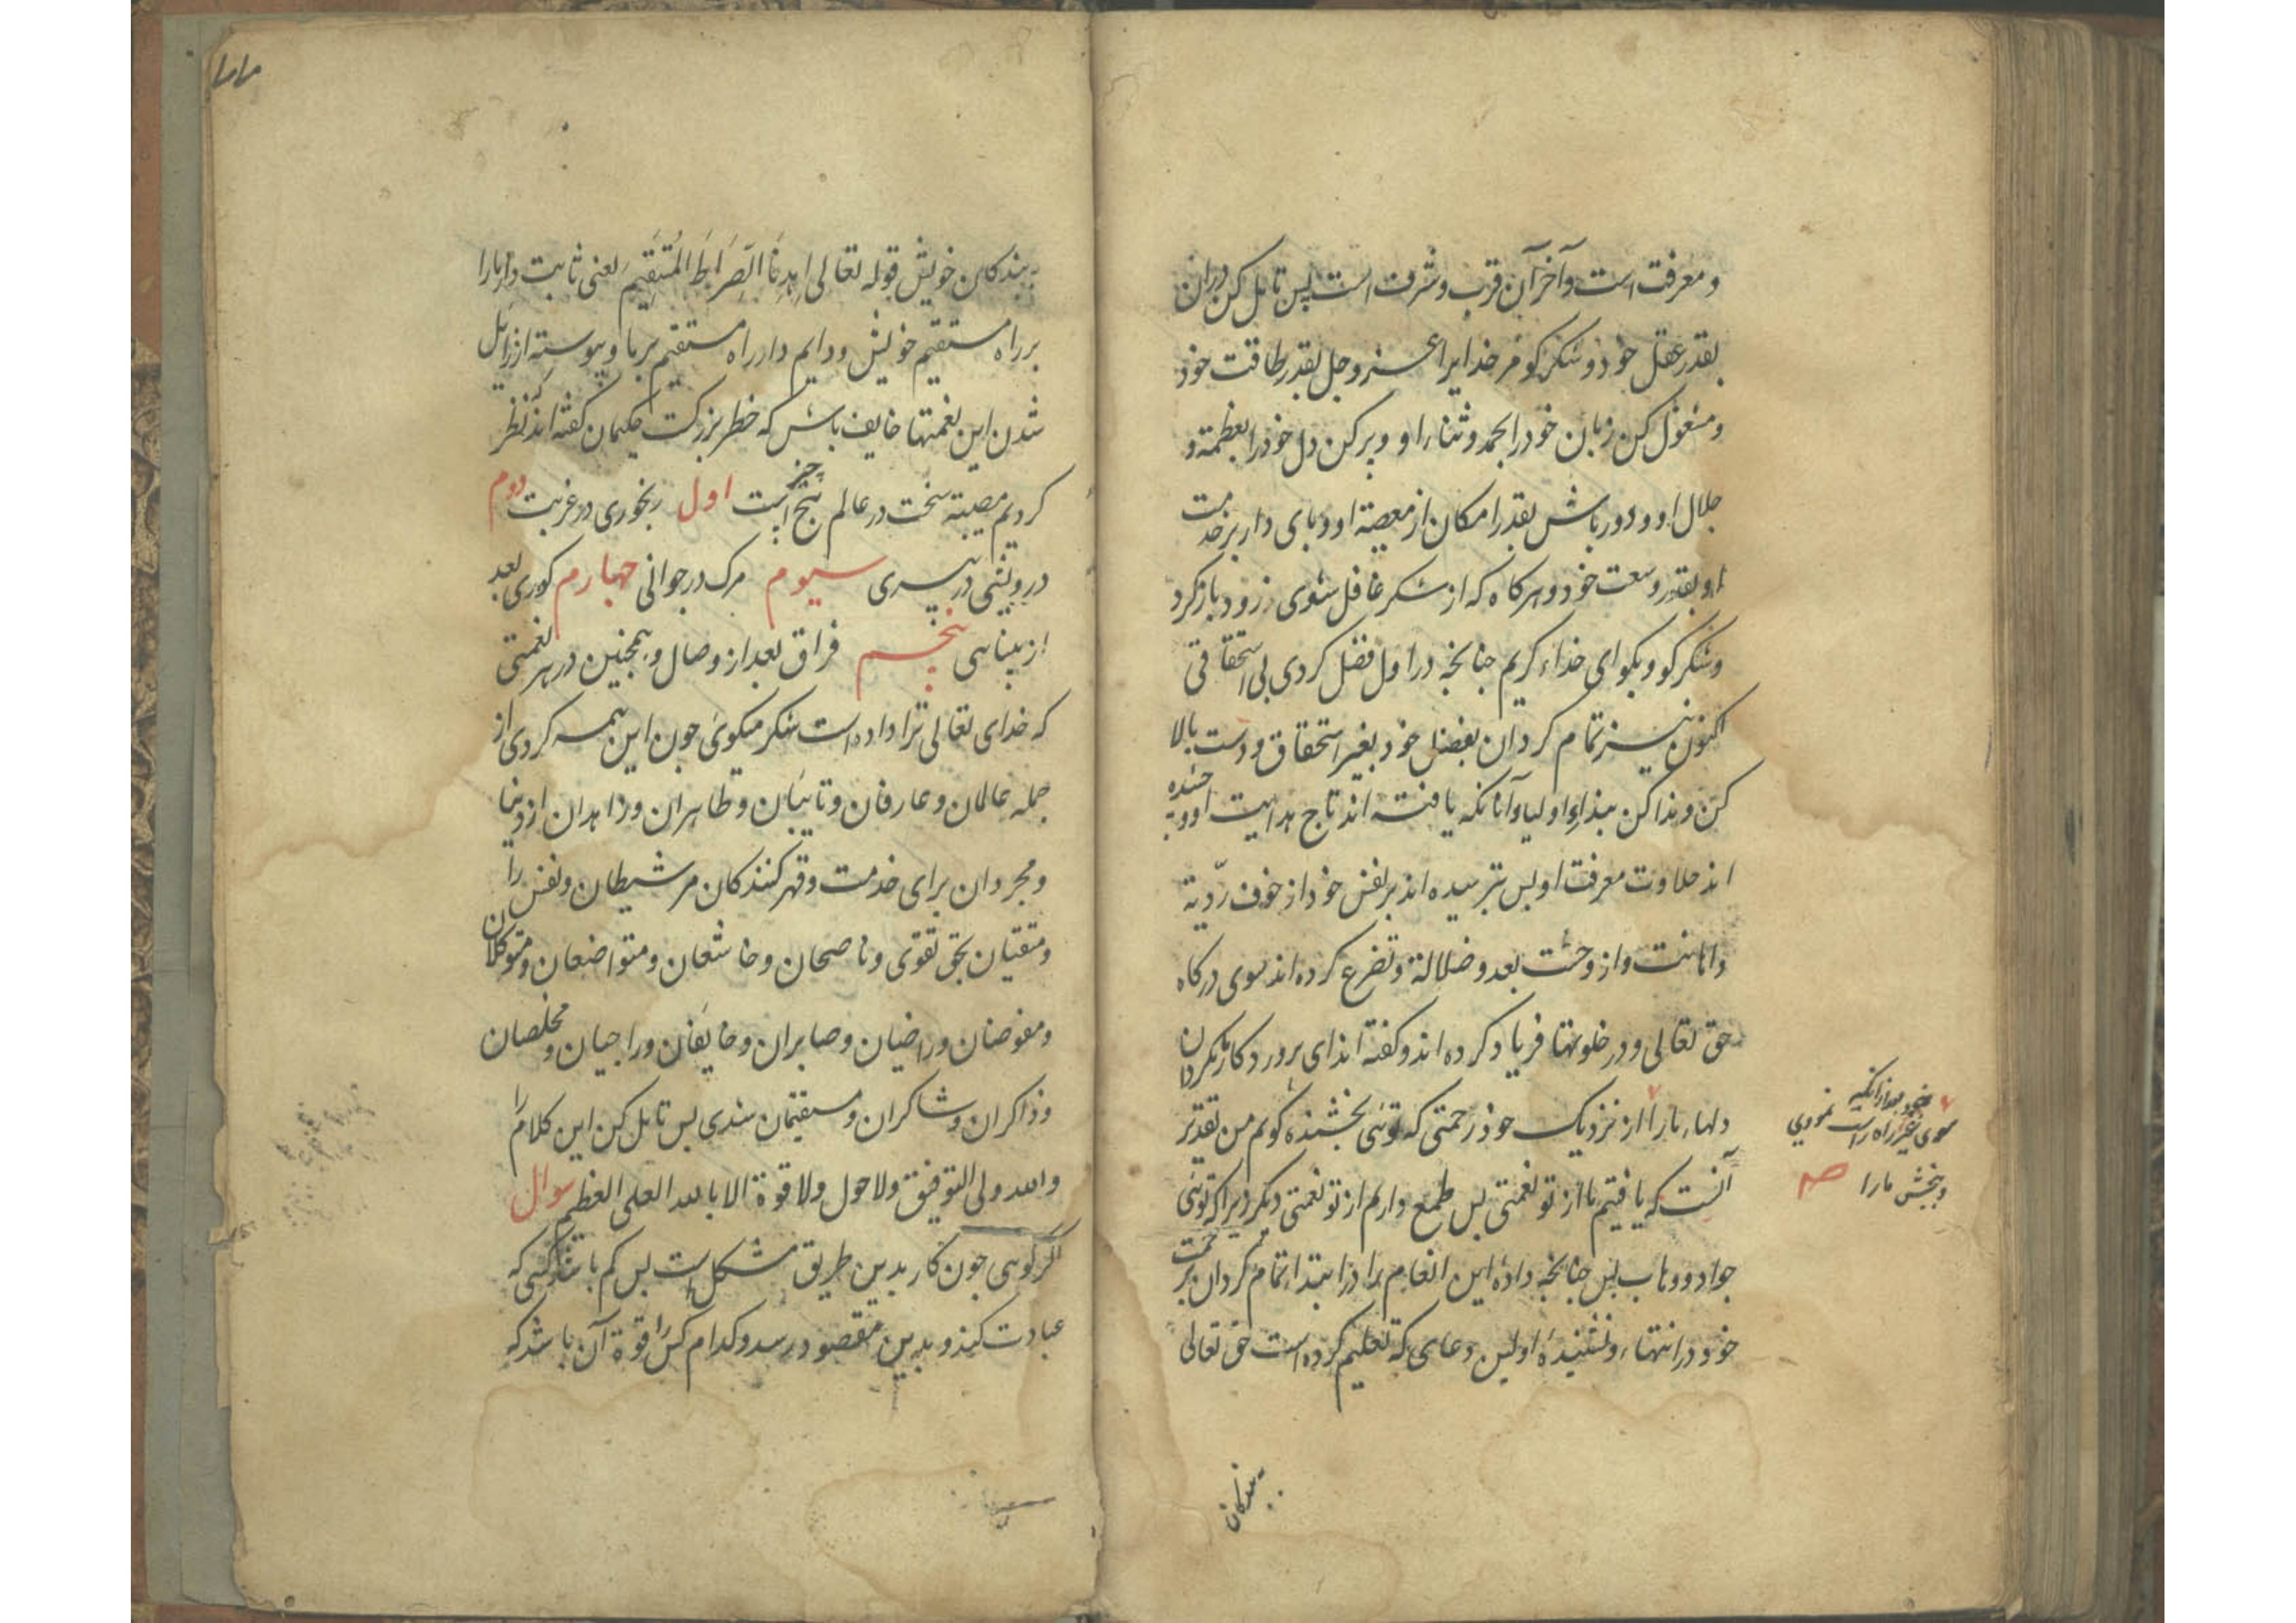 و معرفت است و آخر آن قرب و شرف است پس تامل کن در آن
بقدر عقل خود و شکر کو مر خدایرا عز و جل بقدر طاقت خود
و مشغول کن زبان خود را بحمد و ثناء او و پر کن دل خود را بعظمة و
جلال او و دور باش بقدر امکان از معصیة او و بای دار بر خدمت
او بقدر وسعت خود و هرکاه که از شکر غافل شوی زود باز کرد
و شکر کو و بکو ای خداء کریم جنانجه در اول فضل کردی بی استحقاقی
اکنون نیز تمام کردان بفضل خود بغیر استحقاق و دست بالا
کن و ندا کن بنداء اولیا و آنانکه یافته اند تاج هدایت او و جشیده
اند حلاوت معرفت او بس ترسیده اند بر نفس خود از خوف ردّیة
و اهانت و از وحشت بعد و ضلالة و تضرع کرده اند سوی درکاه
حق تعالی و در خلوتها فریاد کرده اند و کفته اند ای بروردکار ما مکردان
دلهاء ما را از نزدیک خود رحمتی که توئی بخشنده کویم من تقدیر
سوی غیر راه راست نمودی
و ببخش ما را صح
آنست که یافتیم ما از تو نعمتی بس طمع داریم از تو نعمتی دیکر زیرا که توئی
جواد و وهاب بس جنانجه دادۀ این انعام ما را در ابتدا تمام کردان برحمت
خود در انتهاء و نشنیدۀ اولین دعای که تعلیم کرده است حق تعالی
بندکان
بندکان خویش قوله تعالی اِهدِنَا الصِّرَاطَ المُستَقِیمَ یعنی ثابت دار ما را
بر راه مستقیم خویش و دایم دار راه مستقیم بر ما و پیوسته از زایل
شدن این نعمتها خایف باش که خطر بزرکست حکیمان کفته اند که نظر
کردیم مصیبة سخت در عالم پنج چیز است اول رنجوری در غربت دوم
درویشی در پیری سیوم مرک در جوانی چهارم کوری بعد
از بینایی پنجم فراق بعد از وصال و همچنین در هر نعمتی
که خدای تعالی ترا داده است شکر میکوی جون این همه کردی از
جمله عالمان و عارفان و تایبان و طاهران و زاهدان از دنیا
و مجردان برای خدمت و قهر کنندکان مر شیطان و نفس را
و متقیان بحق تقوی و ناصحان و خاشعان و متواضعان و متوکلان
و مفوضان و راضیان و صابران و خایفان و راجیان و مخلصان
و ذاکران و شاکران و مستقیمان شدی بس تامل کن این کلام را
والله ولی التوفیق ولا حول ولا قوة الا بالله العلی العظیم سوال
اکر کوئی جون کار بدین طریق مشکل است بس کم باشد کسی که
عبادت کند و بدین مقصود رسد و کدام کس را قوة آن باشد که